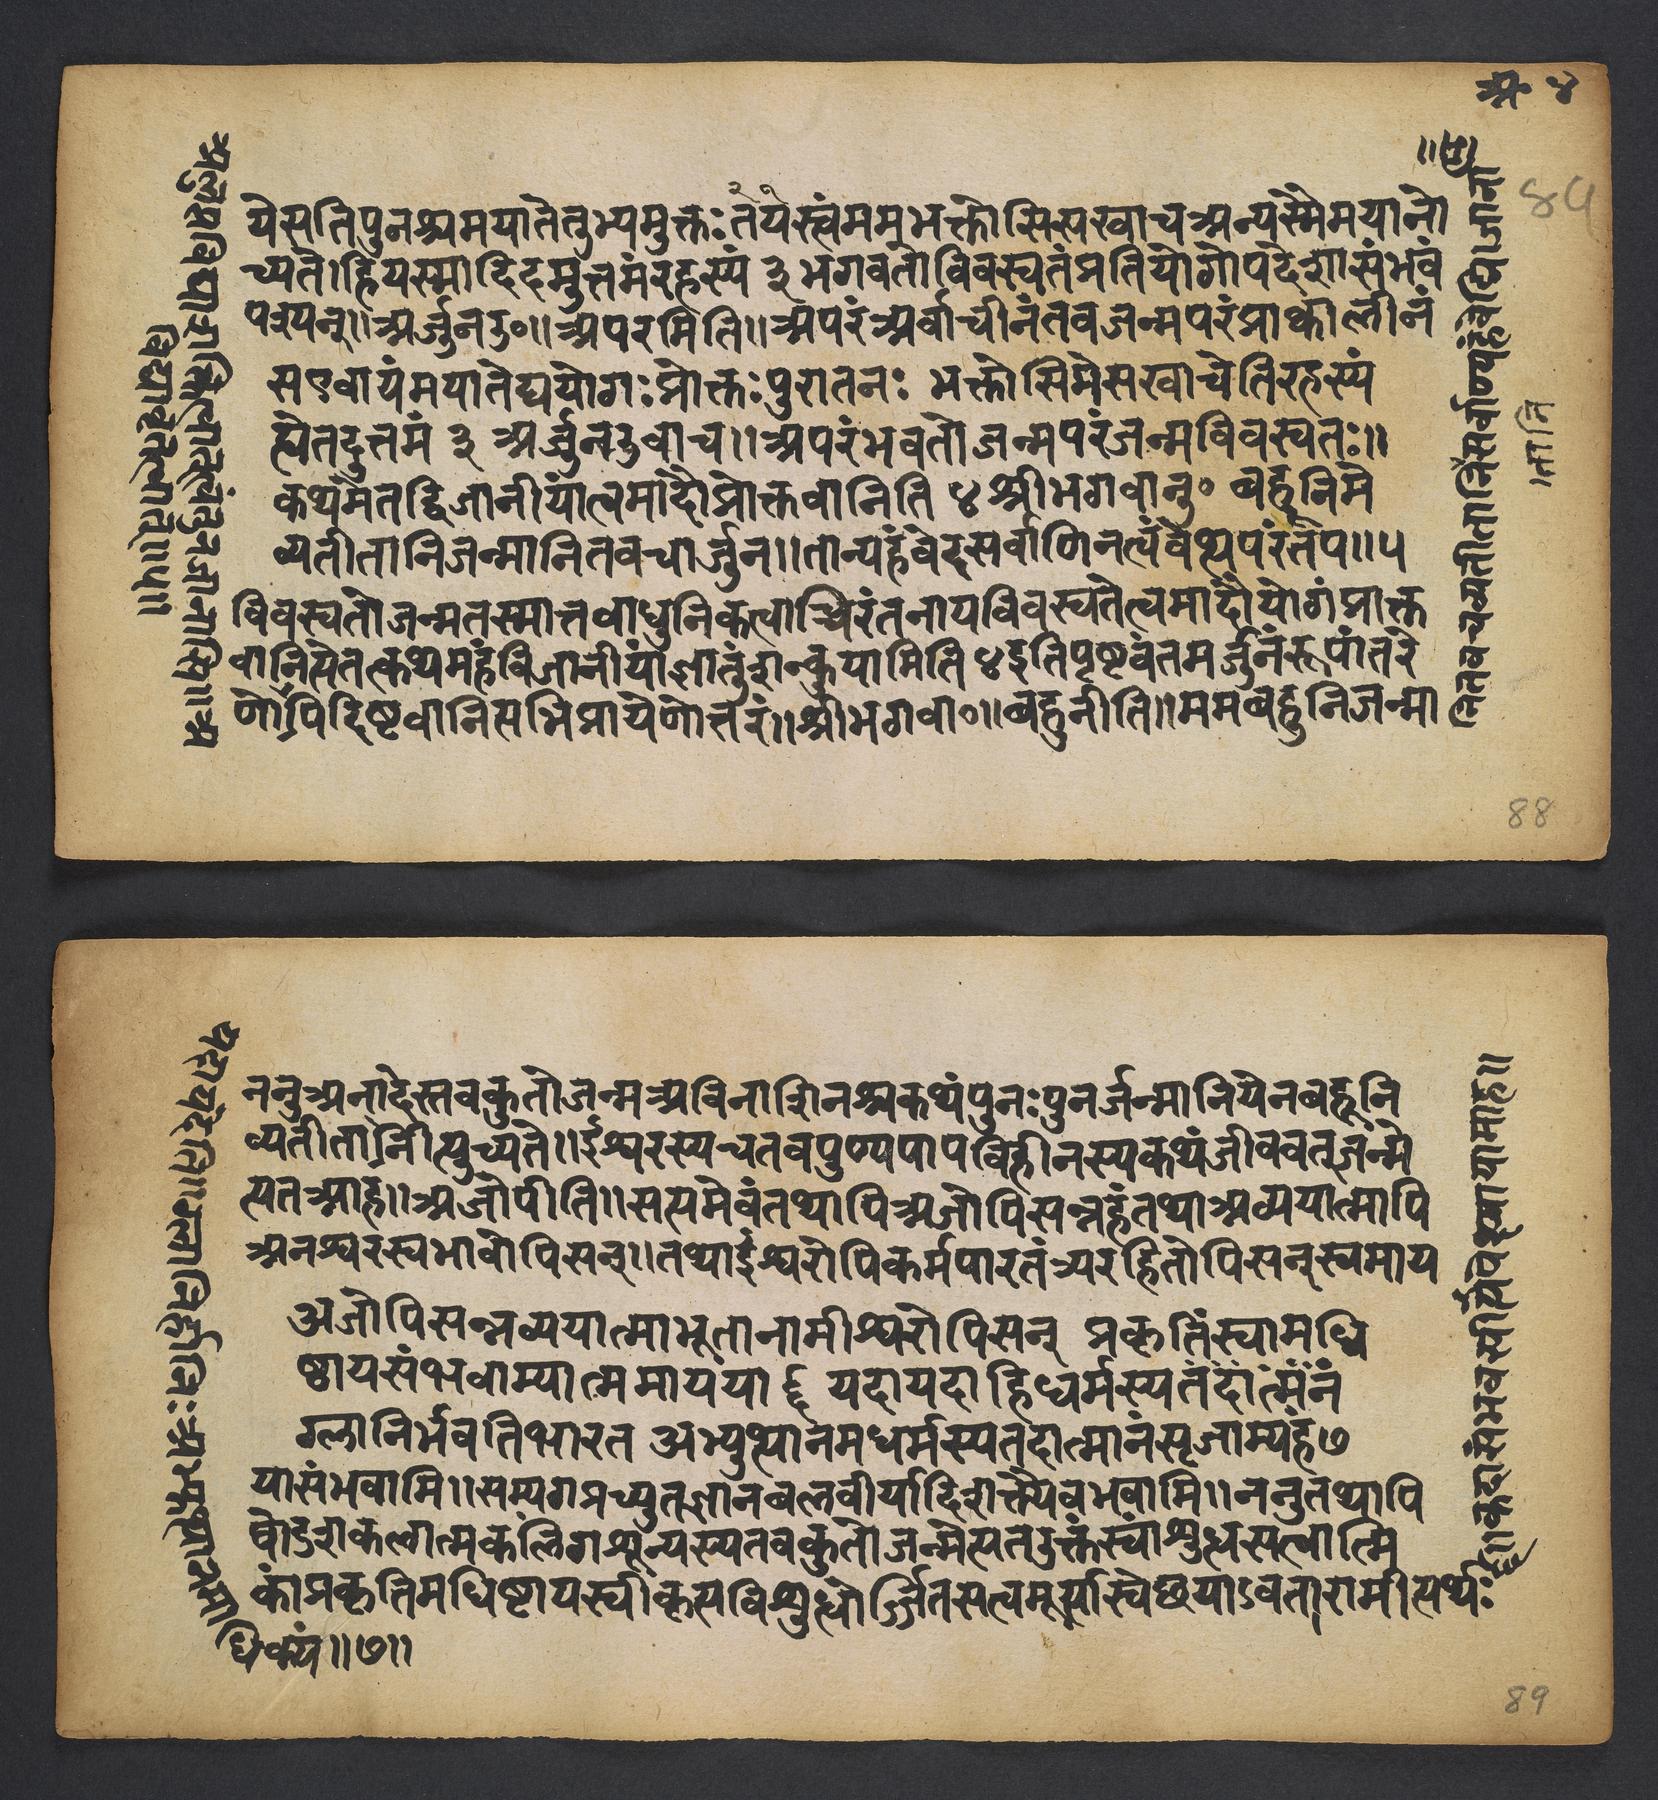 अ॰ ४
४५
येसतिपुनश्चमयातेतुभ्यमुक्तःतयस्त्वंममभक्तोसिसखाचअन्यस्मैमयानो
च्यते।हियस्मादिदमुत्तमंरहस्यं ३ भगवतोविवस्वतंप्रतियोगोपदेशासंभवं
पश्यन्।।अर्जुनउ॰।।अपरमिति।।अपरंअर्वाचीनंतवजन्मपरंप्राक्कालीनं
सएवायंमयातेद्ययोगःप्रोक्तःपुरातनः भक्तोसिमेसखाचेतिरहस्यं
ह्येतदुत्तमं ३ अर्जुनउवाच।।अपरंभवतोजन्मपरंजन्मविवस्वतः।।
कथमेतद्विजानीयांत्वमादौप्रोक्तवानिति ४ श्रीभगवानु॰ बहूनिमे
व्यतीतानिजन्मानितवचार्जुन।।तान्यहंवेदसर्वाणिनत्वंवेत्थपरंतप।।५
विवस्वतोजन्मतस्मात्तवाधुनिकत्वाच्चिरंतनायविवस्वतेत्वमादौयोगंप्रोक्त
वानित्येतत्कथमहंविजानीयांज्ञातुंशक्नुयामिति ४ इतिपृष्टवंतमर्जुनंरूपांतरे
णोपदिष्टवानित्यभिप्रायेणोत्तरं।।श्रीभगवा॰।।बहुनीति।।ममबहुनिजन्मा
नितवचव्यतीतानितानिसर्वाण्यहंवेद्मिजानामि
।तानि
अलुप्तविद्याशक्तित्वात्त्वंतुनजानासि।।अ
विद्यावृतत्वात्।।५।।
88
ननुअनादेस्तवकुतोजन्मअविनाशिनश्चकथंपुनःपुनर्जन्मानियेनबहूनि
व्यतीतानीत्युच्यते।।ईश्वरस्यचतवपुण्यपापविहीनस्यकथंजीववत्जन्मे
त्यतआह।।अजोपीति।।सत्यमेवंतथापिअजोपिसन्नहंतथाअव्ययात्मापि
अनश्वरस्वभावोपिसन्।।तथाईश्वरोपिकर्मपारतंत्र्यरहितोपिसन्स्वमाय
अजोपिसन्नव्ययात्माभूतानामीश्वरोपिसन् प्रकृतिंस्वामधि
ष्ठायसंभवाम्यात्ममायया ६ यदायदाहिधर्मस्य
ग्लानिर्भवतिभारत अभ्युत्थानमधर्मस्यतदात्मानंसृजाम्यहं७
यासंभवामि।।सम्यगप्रच्युतज्ञानबलवीर्यादिशक्त्यैवभवामि।।ननुतथापि
षोडशकलात्मकलिंगशून्यस्यतवकुतोजन्मेत्यतउक्तंस्वांशुद्धसत्वात्मि
कांप्रकृतिमधिष्टायस्वीकृत्यविशुद्धोर्ज्जितसत्वमूर्त्यास्वेछयाऽवतारामीत्यर्थः
६।कदासंभवसीत्यपेक्षायामाह।।
यदायदेति।।ग्लानिर्हानिः।अभ्युत्थानमा
धिक्यं।।७।।
89